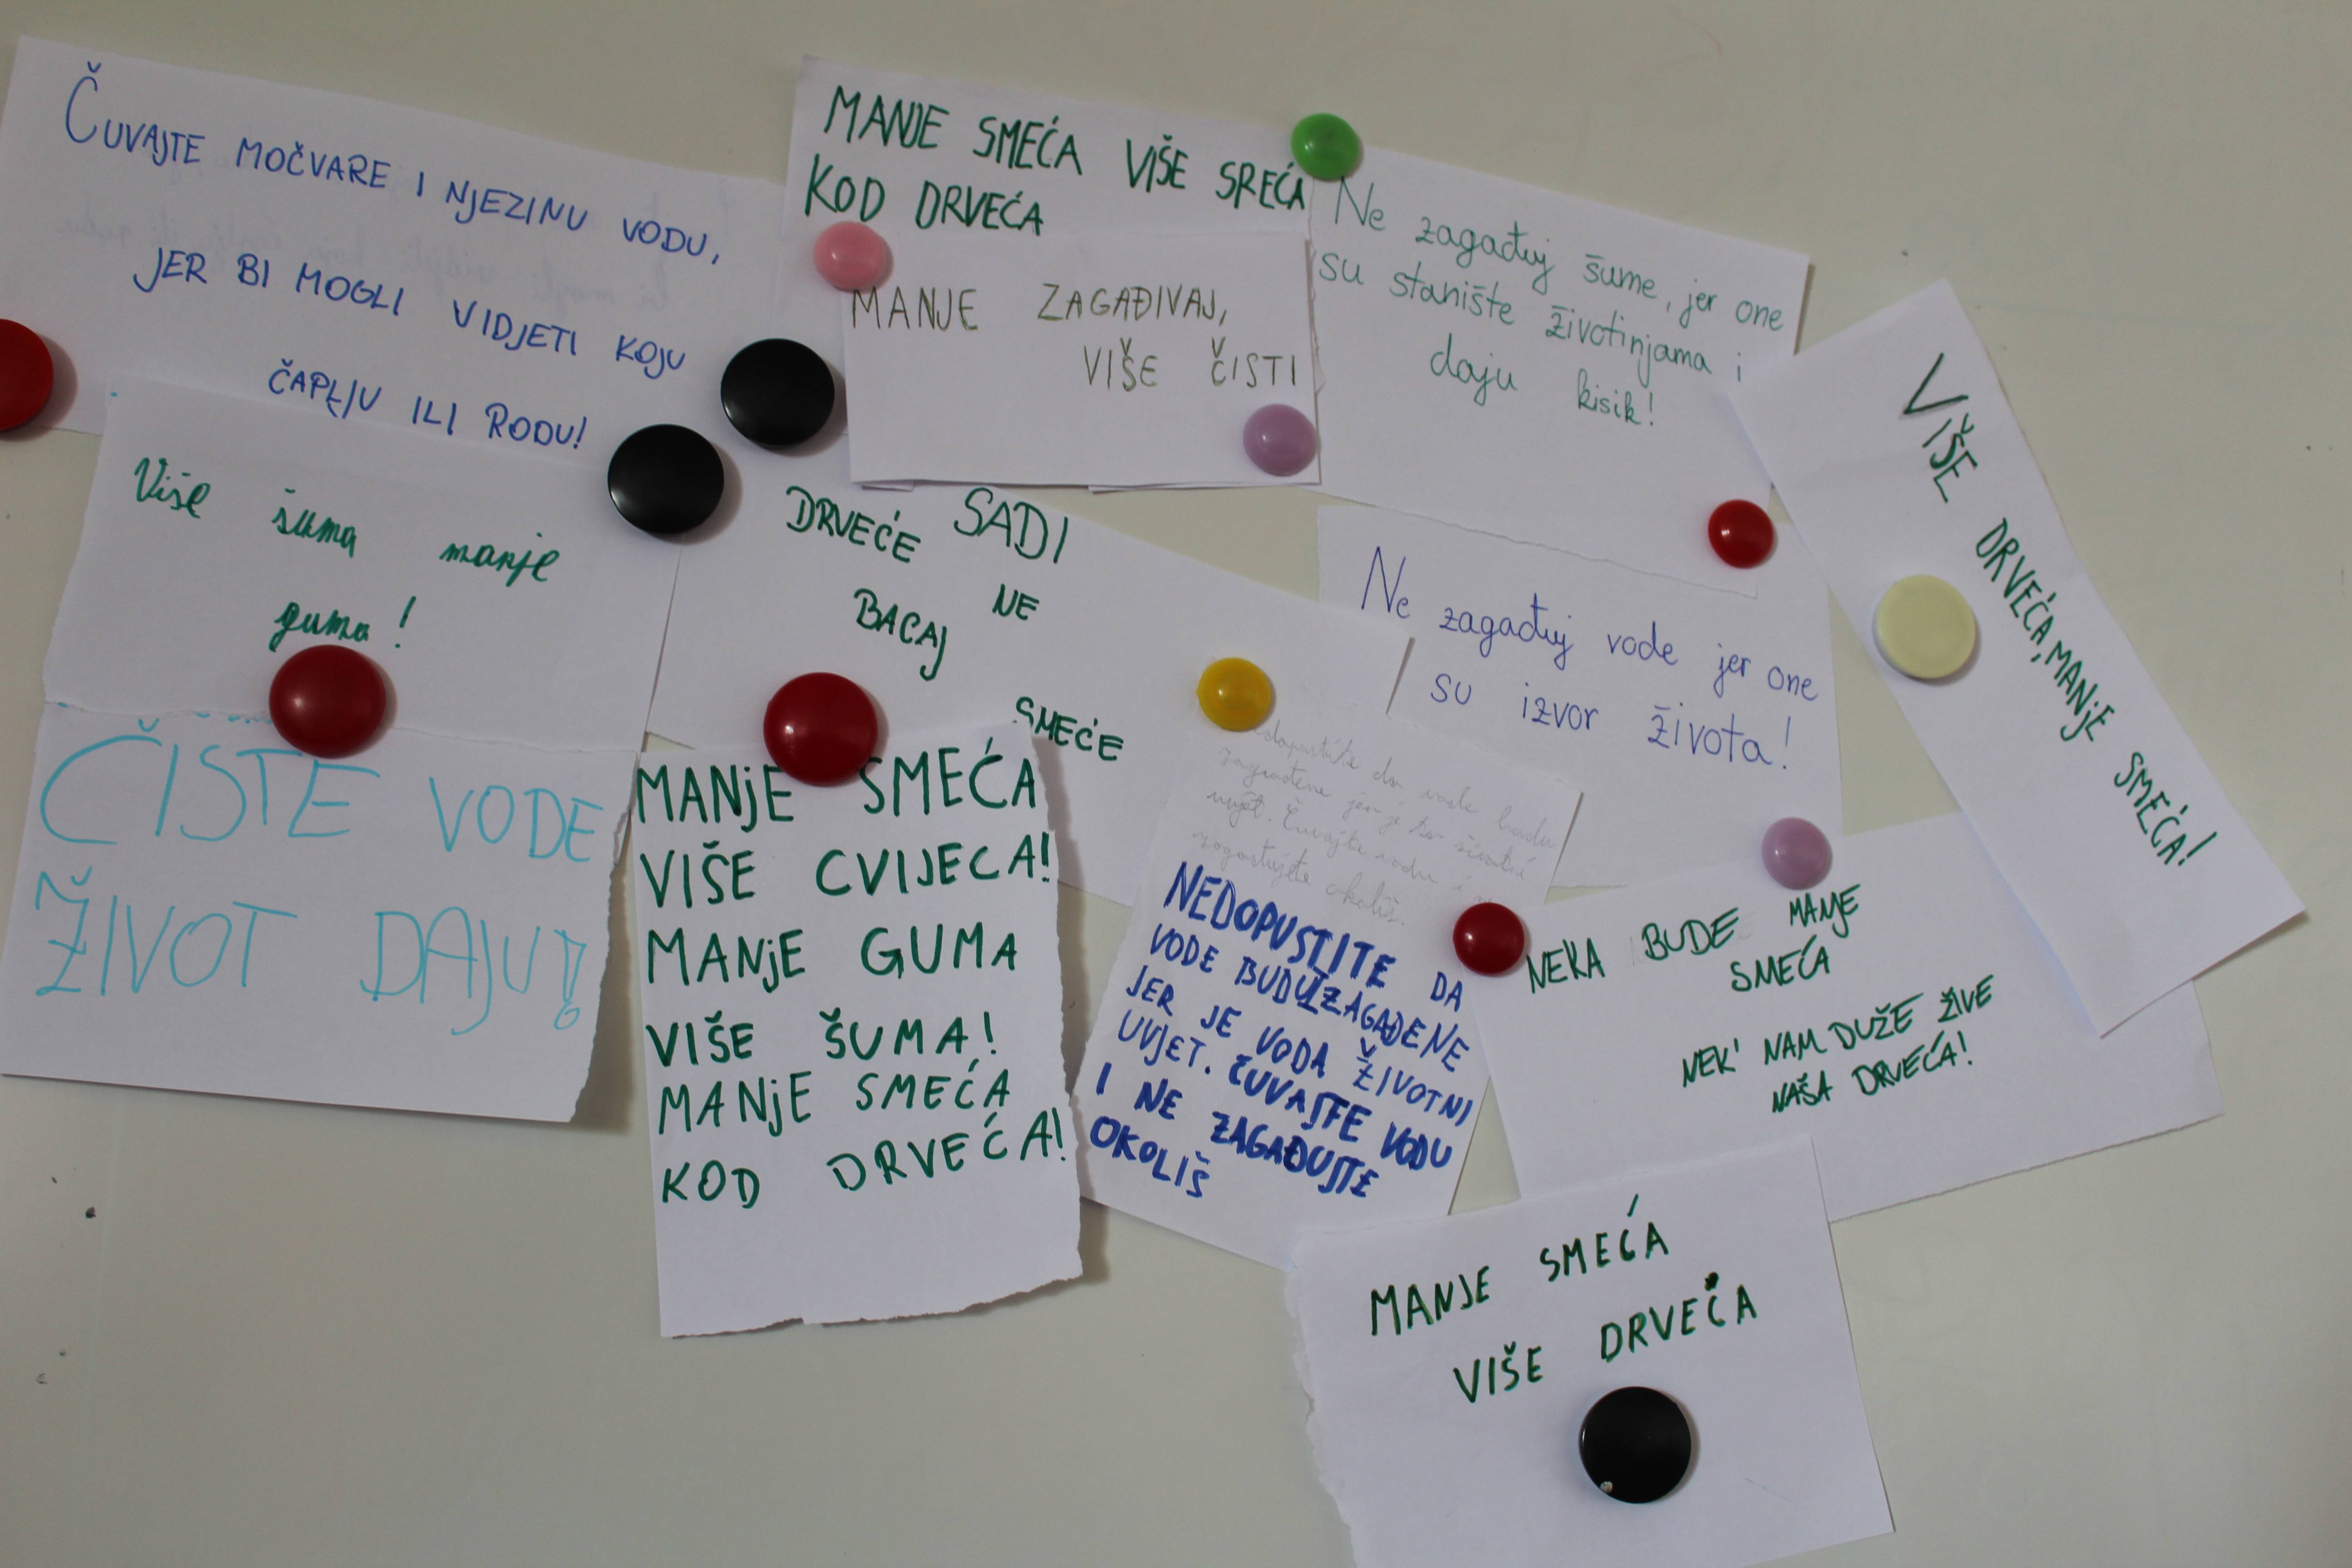 ČUVAJTE MOČVARE I NJEZINU VODU,
JER BI MOGLI VIDJETI KOJU
ČAPLJU ILI RODU!
MANJE SMEĆA VIŠE SREĆA
KOD DRVEĆA
MANJE ZAGAĐIVAJ,
VIŠE ČISTI
Ne zagađuj šume, jer one
su stanište životinjama i
daju kisik!
VIŠE DRVEĆA, MANJE SMEĆA!
Više šuma manje
guma!
DRVEĆE SADI
NE
BACAJ
SMEĆE
Ne zagađuj vode jer one
su izvor života!
ČISTE VODE
ŽIVOT DAJU!
MANJE SMEĆA
VIŠE CVIJECA!
MANJE GUMA
VIŠE ŠUMA!
MANJE SMEĆA
KOD DRVEĆA!
da vode budu
zagađene jer je to životni
uvjet. Čuvajte vodu i
zagađujte okoliš.
NEDOPUSTITE DA
VODE BUDU ZAGAĐENE
JER JE VODA ŽIVOTNI
UVJET. ČUVAJTE VODU
I NE ZAGAĐUJTE
OKOLIŠ
NEKA BUDE MANJE
SMEĆA
NEK' NAM DUŽE ŽIVE
NAŠA DRVEĆA!
MANJE SMEĆA
VIŠE DRVEĆA